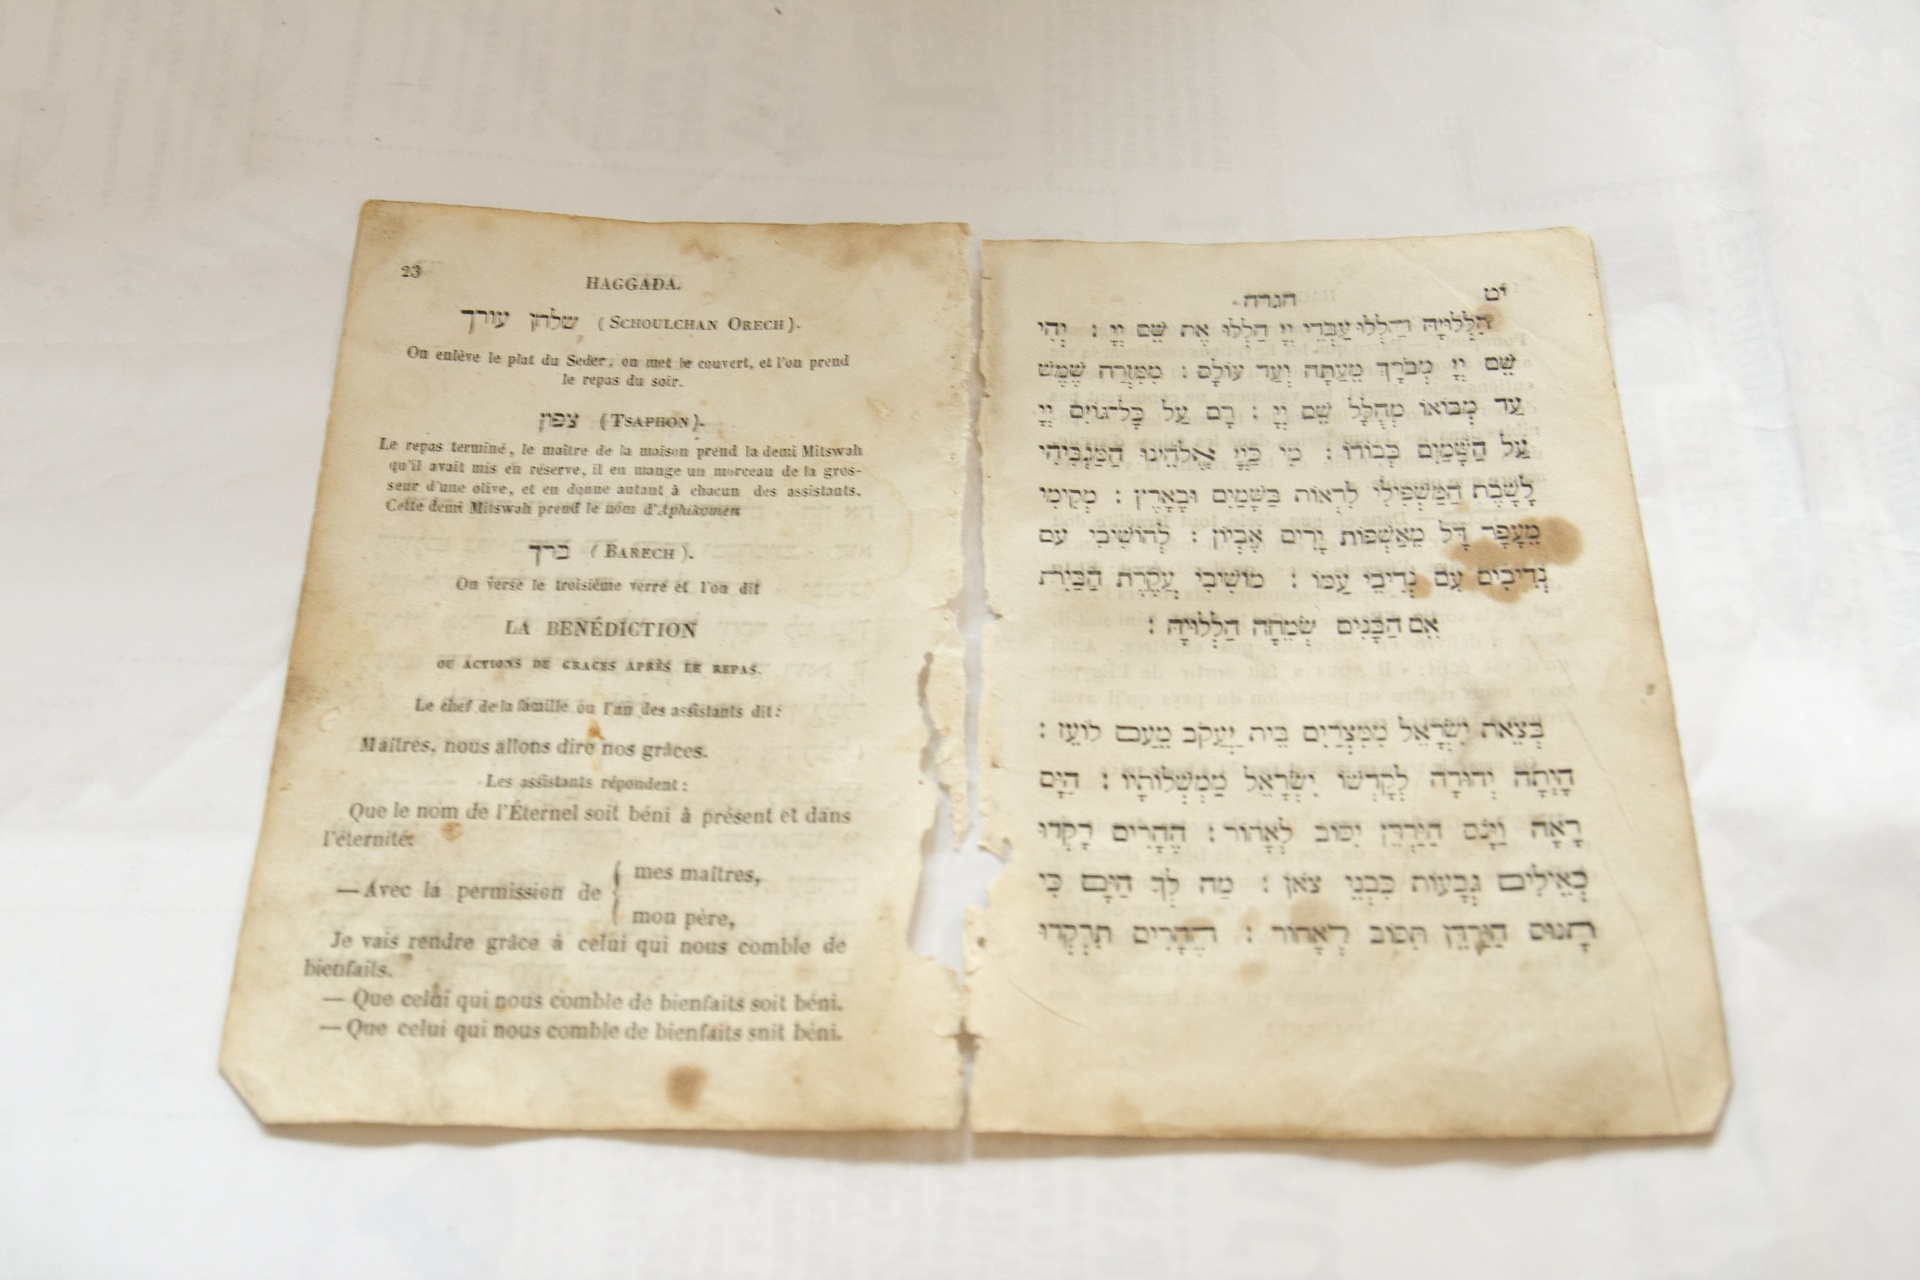 23
HAGGADA.
שלחן עורך (SCHOULCHAN ORECH).
On enlève le plat du Seder, on met le couvert, et l'on prend
le repas du soir.
צפון (TSAPHON).
Le repas terminé, le maître de la maison prend la demi Mitswah
qu'il avait mis en réserve, il en mange un morceau de la gros-
seur d'une olive, et en donne autant à chacun des assistants.
Cette demi Mitswah prend le nom d'Aphikomen
ברך (BARECH).
On verse le troisième verre et l'on dit
LA BENÉDICTION
OU ACTIONS DE GRACES APRÈS LE REPAS.
Le chef de la famille ou l'un des assistants dit:
Maîtres, nous allons dire nos grâces.
Les assistants répondent:
Que le nom de l'Éternel soit béni à présent et dans
l'éternité:
— Avec la permission de { mes maîtres,
mon père,
Je vais rendre grâce à celui qui nous comble de
bienfaits.
— Que celui qui nous comble de bienfaits soit béni.
— Que celui qui nous comble de bienfaits snit béni.
הגדה
יט
הַלְלוּיָהּ הַלְלוּ עַבְדֵי יְיָ הַלְלוּ אֶת שֵׁם יְיָ : יְהִי
שֵׁם יְיָ מְבֹרָךְ מֵעַתָּה וְעַד עוֹלָם : מִמִּזְרַח שֶׁמֶשׁ
עַד מְבוֹאוֹ מְהֻלָּל שֵׁם יְיָ : רָם עַל כָּל־גּוֹיִם יְיָ
עַל הַשָּׁמַיִם כְּבוֹדוֹ : מִי כַּיְיָ אֱלֹהֵינוּ הַמַּגְבִּיהִי
לָשָׁבֶת הַמַּשְׁפִּילִי לִרְאוֹת בַּשָּׁמַיִם וּבָאָרֶץ : מְקִימִי
מֵעָפָר דָּל מֵאַשְׁפּוֹת יָרִים אֶבְיוֹן : לְהוֹשִׁיבִי עִם
נְדִיבִים עִם נְדִיבֵי עַמּוֹ : מוֹשִׁיבִי עֲקֶרֶת הַבַּיִת
אֵם הַבָּנִים שְׂמֵחָה הַלְלוּיָהּ :
בְּצֵאת יִשְׂרָאֵל מִמִּצְרַיִם בֵּית יַעֲקֹב מֵעַם לוֹעֵז :
הָיְתָה יְהוּדָה לְקָדְשׁוֹ יִשְׂרָאֵל מַמְשְׁלוֹתָיו : הַיָּם
רָאָה וַיָּנֹס הַיַּרְדֵּן יִסּוֹב לְאָחוֹר : הֶהָרִים רָקְדוּ
כְאֵילִים גְּבָעוֹת כִּבְנֵי צֹאן : מַה לְּךָ הַיָּם כִּי
תָנוּס הַיַּרְדֵּן תִּסּוֹב לְאָחוֹר : הֶהָרִים תִּרְקְדוּ